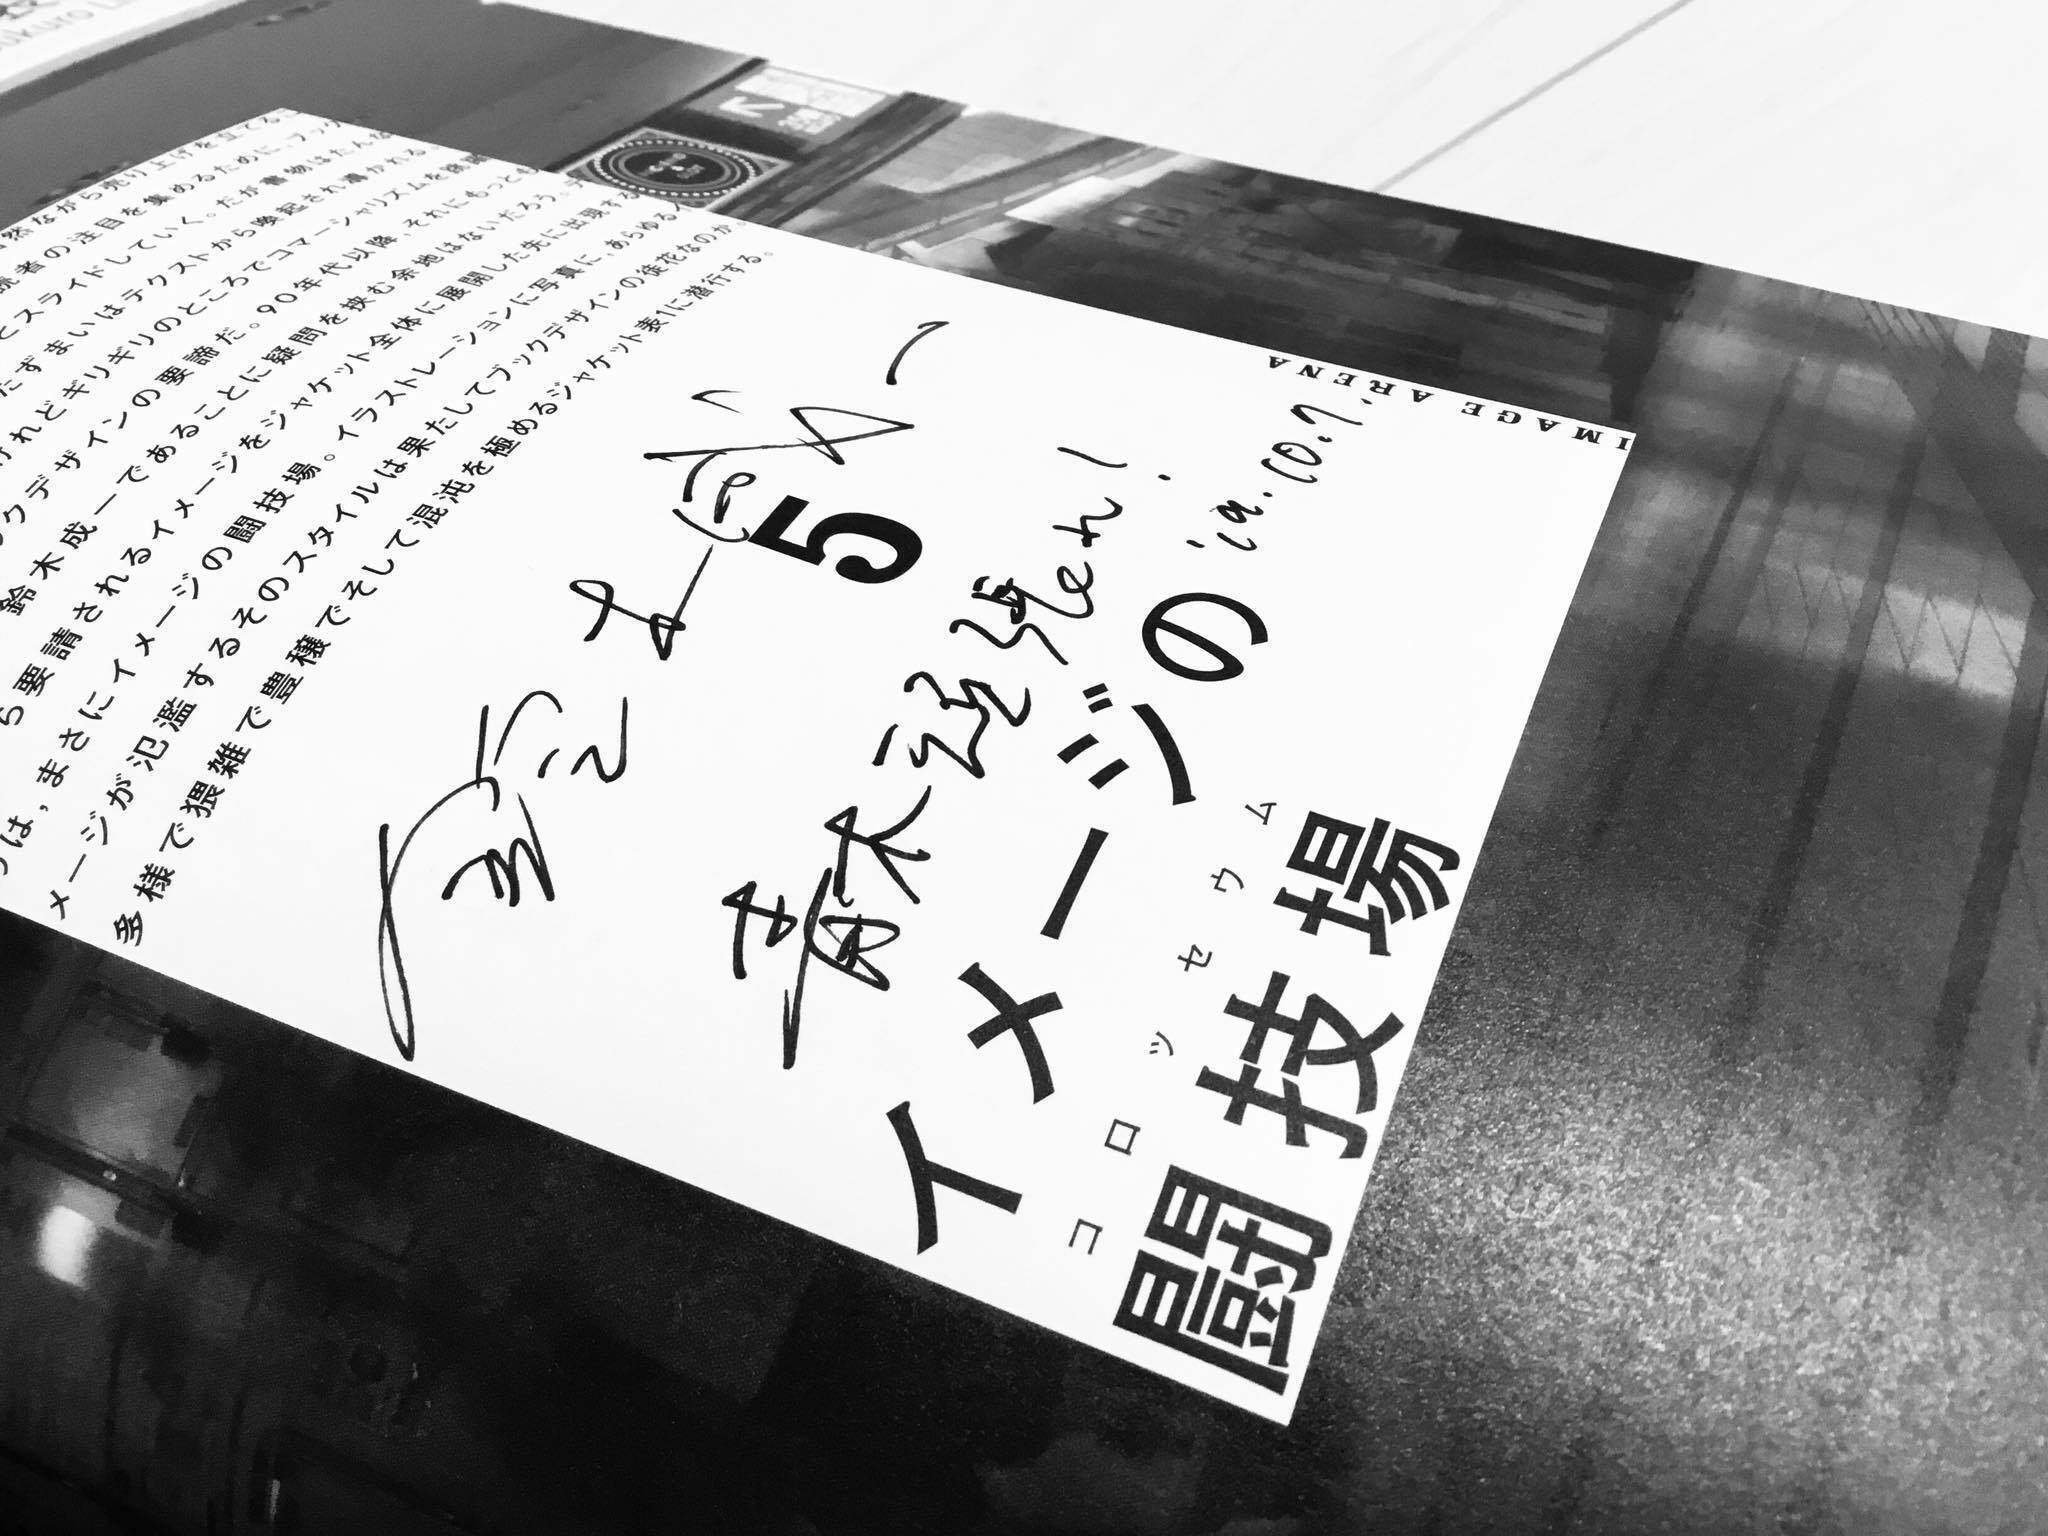 然ながら売り上げを立てる
読者の注目を集めるために,ブック
とスライドしていく。だが書物はたんな
たずまいはテクストから喚起され導かれる
けれどギリギリのところでコマーシャリズムを跳躍
クデザインの要諦だ。90年代以降,それにもっとも
鈴木成一であることに疑問を挟む余地はないだろう。テ
ら要請されるイメージをジャケット全体に展開した先に出現する
は,まさにイメージの闘技場。イラストレーションに写真に,あらゆるイ
メージが氾濫するそのスタイルは果たしてブックデザインの徒花なのか。
多様で猥雑で豊穣でそして混沌を極めるジャケット表1に潜行する。
5
'19.10.7.
イメージの
コロッセウム
闘技場
IMAGE ARENA